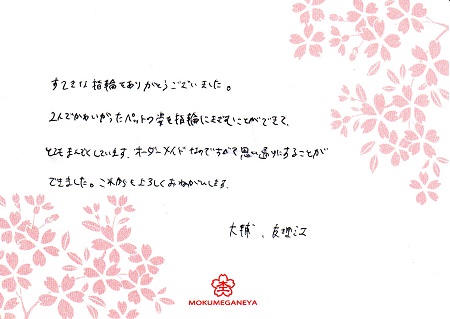 すてきな指輪をありがとうございました。
2人でかわいがったペットの姿を指輪にきざむことができて、
とてもまんぞくしています。オーダーメイドなので形がて思い通りにすることが
できました。これからもよろしくおねがいします。
大輔、友理江
MOKUMEGANEYA